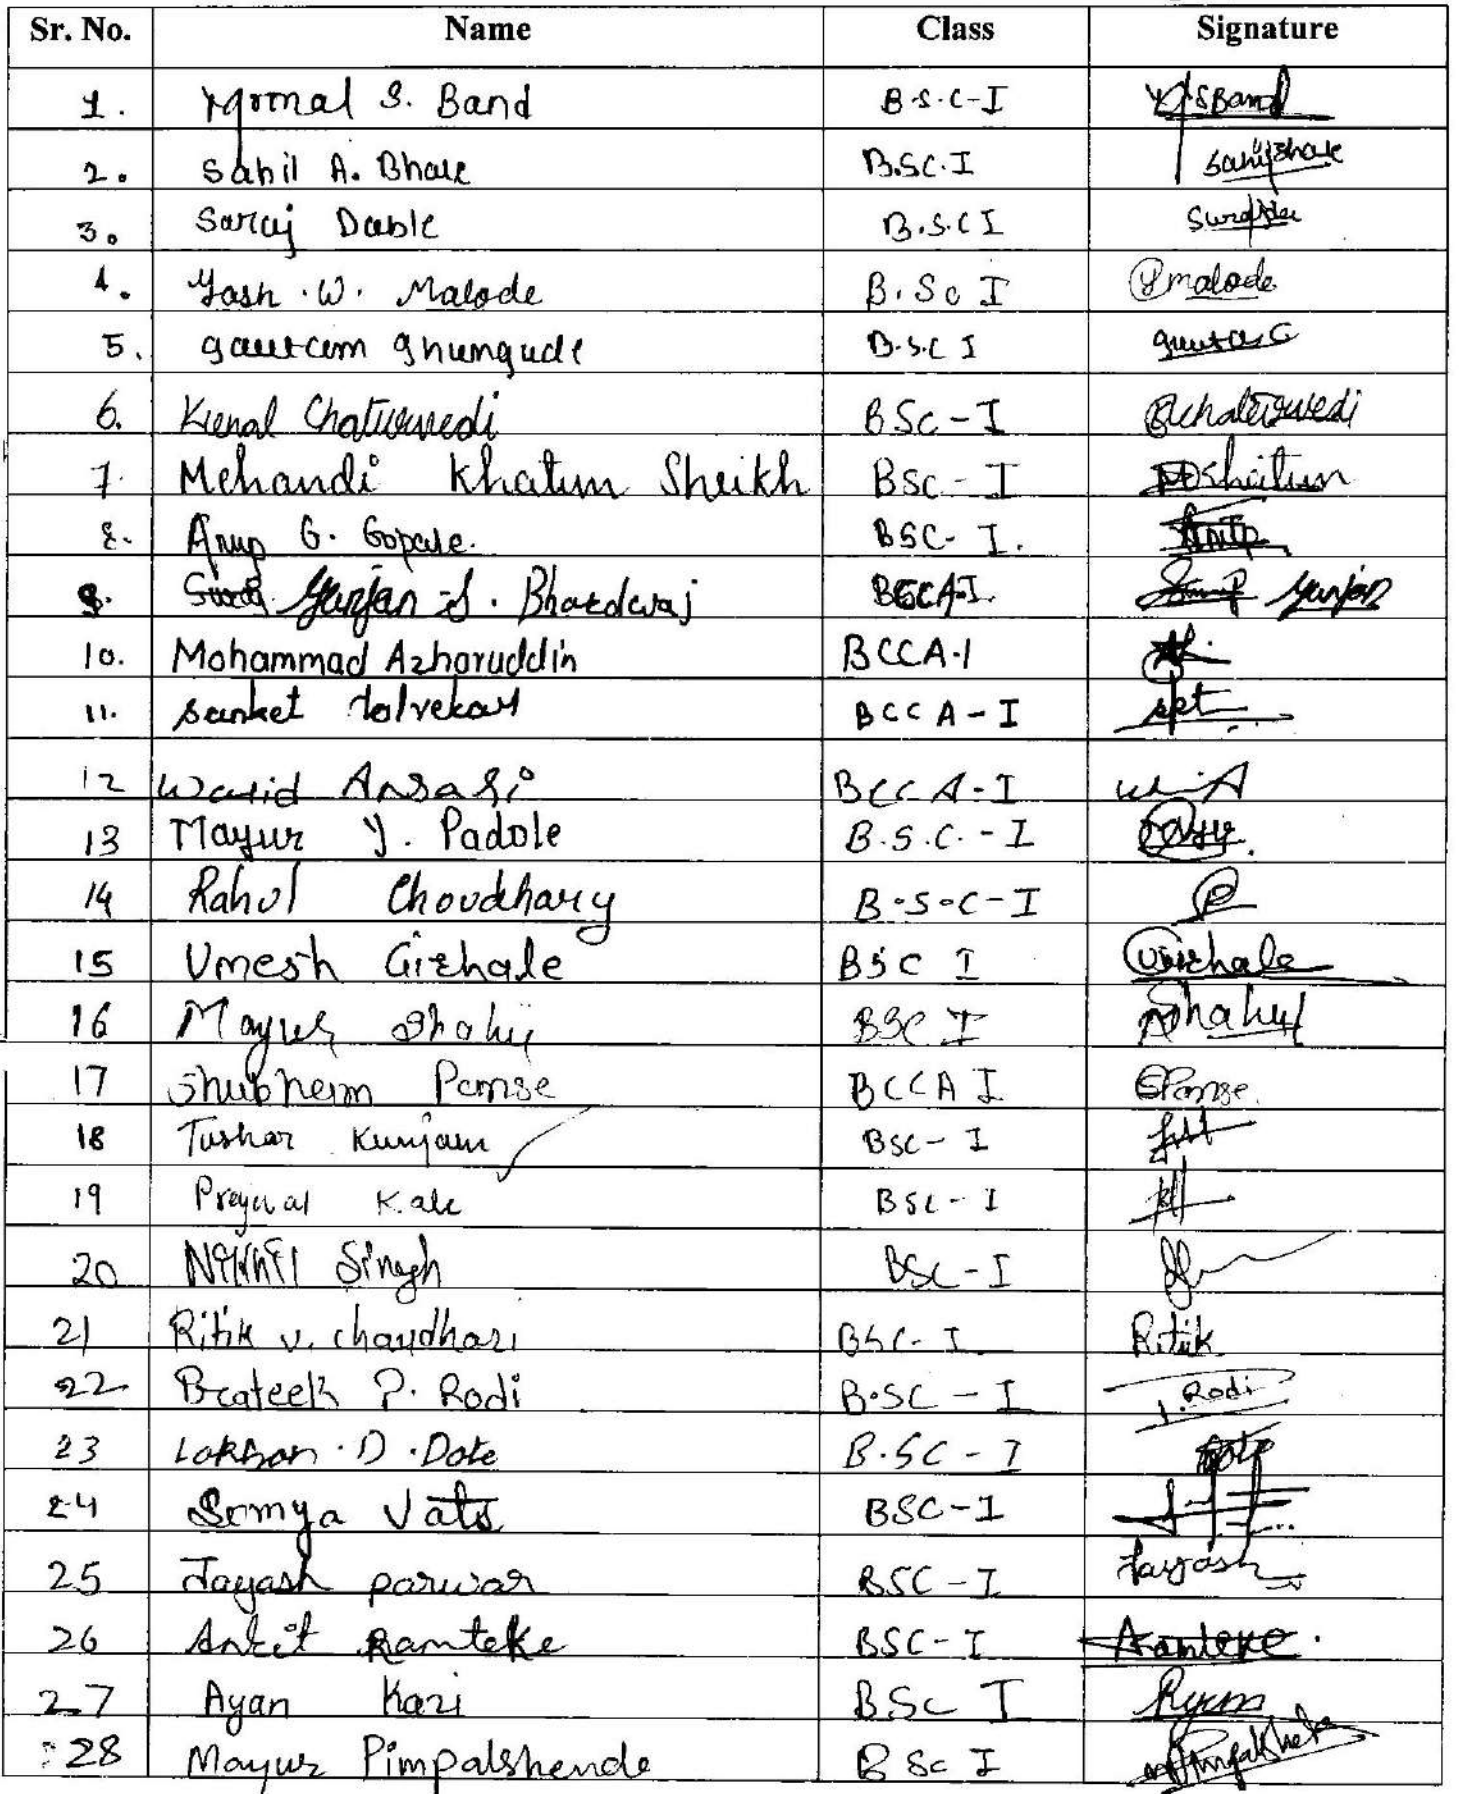 Sr. No. Name Class Signature
1. S. Band B.S.C-I SBand
2. Sahil A. Bhale B.SC.I
3. Suraj Dable B.S.C I
4. Yash .W. Malode B.Sc I malode
5. gautam ghungude B.S.C I
6. Kunal Chaturvedi BSc-I
7. Mehandi Khatun Sheikh BSC-I
8. Anup G. Gopale. BSC-I.
9. Gunjan S. Bhardwaj BCCA-I. Gunjan
10. Mohammad Azharuddin BCCA-I
11. Sanket tolvekar BCCA-I skt
12 Ansari BCCA-I
13 Mayur Y. Padole B.S.C.-I
14 Rahul Choudhary B.S.C-I
15 Umesh Girhale BSC I
16 Mayur Shahu BSC I
17 Shubham Pamse BCCA I
18 Tushar Kunjam BSC-I
19 Prajwal Kale BSC-I
20 Nikhil Singh BSC-I
21 Ritik v. chaudhari BSC-I Ritik
22 Prateek P. Rodi B.SC-I Rodi
23 Lokhan .D .Dote B.SC-I
24 Somya Vats BSC-I
25 Jayash parwar BSC-I Jayash
26 Ankit Ramteke BSC-I Ramteke.
27 Ayan Kazi BSC I
28 Mayur Pimpalshende BSc I